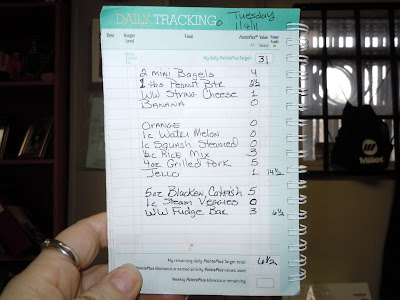 DAILY TRACKING
Tuesday
1/4/11
Time
Hunger Level
Food
PointsPlus® Value
Power Foods
My daily PointsPlus Target 31
2 mini Bagels 4
1 tbs Peanut Btr 2 1/2
WW String Cheese 1
Banana 0
Orange 0
1c Water Melon 0
1c Squash Steamed 0
1/2c Rice Mix 3
4oz Grilled Pork 5
Jello 1 14 1/2
5oz Blacken Catfish 5
1c Steam Veggies 0
WW Fudge Bar 3 6 1/2
My remaining daily PointsPlus Target total 6 1/2
Weekly PointsPlus Allowance remaining